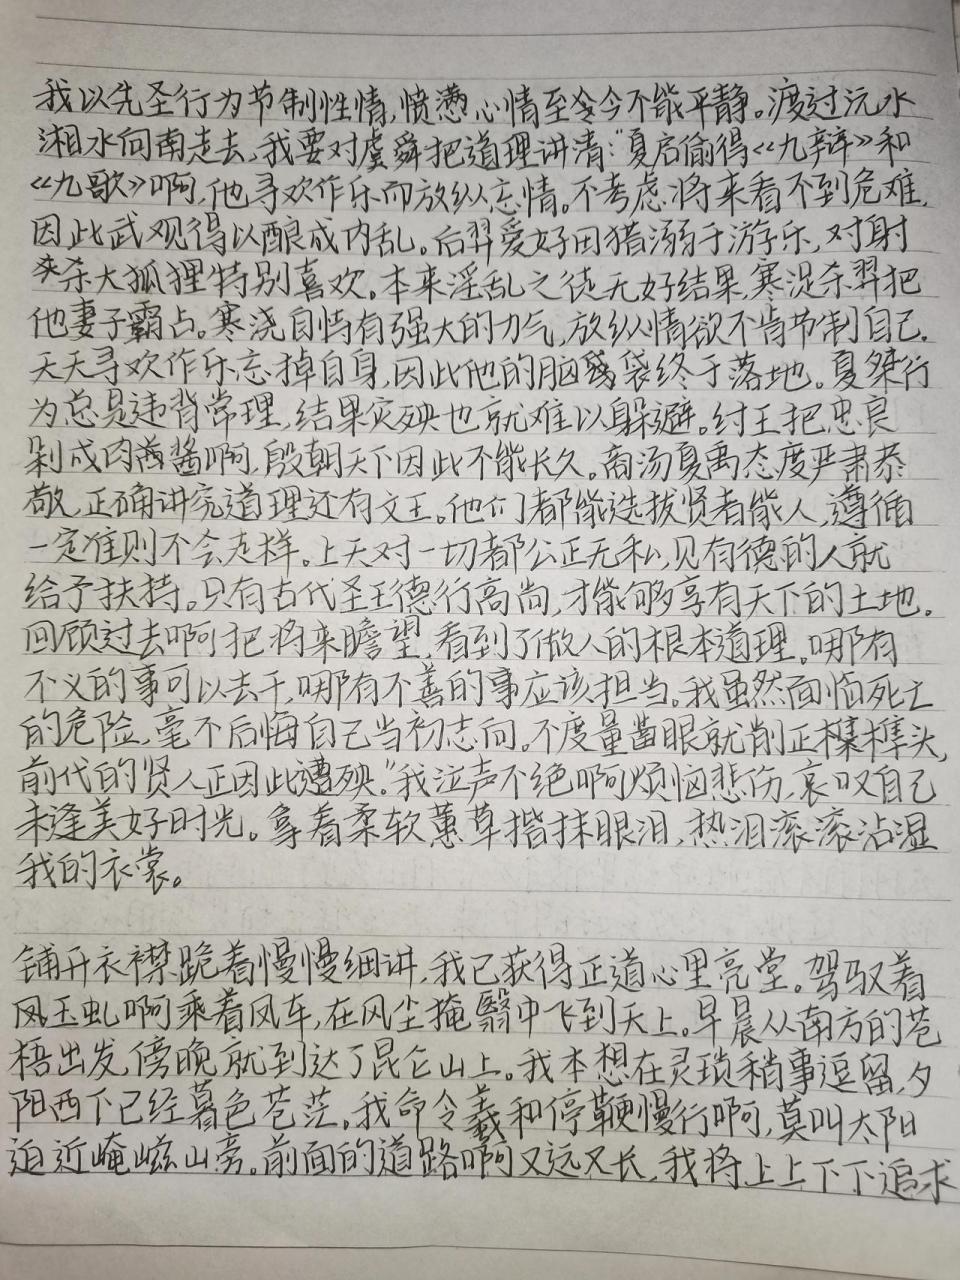 我以先圣行为节制性情,愤懑心情至今不能平静。渡过沅水
湘水向南走去,我要对虞舜把道理讲清:“夏启偷得《九辩》和
《九歌》啊,他寻欢作乐而放纵忘情。不考虑将来看不到危难,
因此武观得以酿成内乱。后羿爱好田猎溺于游乐,对射
杀大狐狸特别喜欢。本来淫乱之徒无好结果,寒浞杀羿把
他妻子霸占。寒浇自恃有强大的力气,放纵情欲不肯节制自己.
天天寻欢作乐忘掉自身,因此他的脑袋终于落地。夏桀行
为总是违背常理,结果灾殃也就难以躲避。纣王把忠良
剁成肉酱啊,殷朝天下因此不能长久。商汤夏禹态度严肃恭
敬,正确讲究道理还有文王。他们都能选拔贤者能人,遵循
一定准则不会走样。上天对一切都公正无私,见有德的人就
给予扶持。只有古代圣王德行高尚,才能够享有天下的土地.
回顾过去啊把将来瞻望,看到了做人的根本道理。哪有
不义的事可以去干,哪有不善的事应该担当。我虽然面临死亡
的危险,毫不后悔自己当初志向。不度量凿眼就削正榫头,
前代的贤人正因此遭殃.”我泣声不绝啊烦恼悲伤,哀叹自己
未逢美好时光。拿着柔软蕙草揩抹眼泪,热泪滚滚沾湿
我的衣裳。
铺开衣襟跪着慢慢细讲,我已获得正道心里亮堂。驾驭着
凤玉虬啊乘着凤车,在风尘掩翳中飞到天上。早晨从南方的苍
梧出发,傍晚就到达了昆仑山上。我本想在灵琐稍事逗留,夕
阳西下已经暮色苍茫。我命令羲和停鞭慢行啊,莫叫太阳
迫近崦嵫山旁。前面的道路啊又远又长,我将上上下下追求